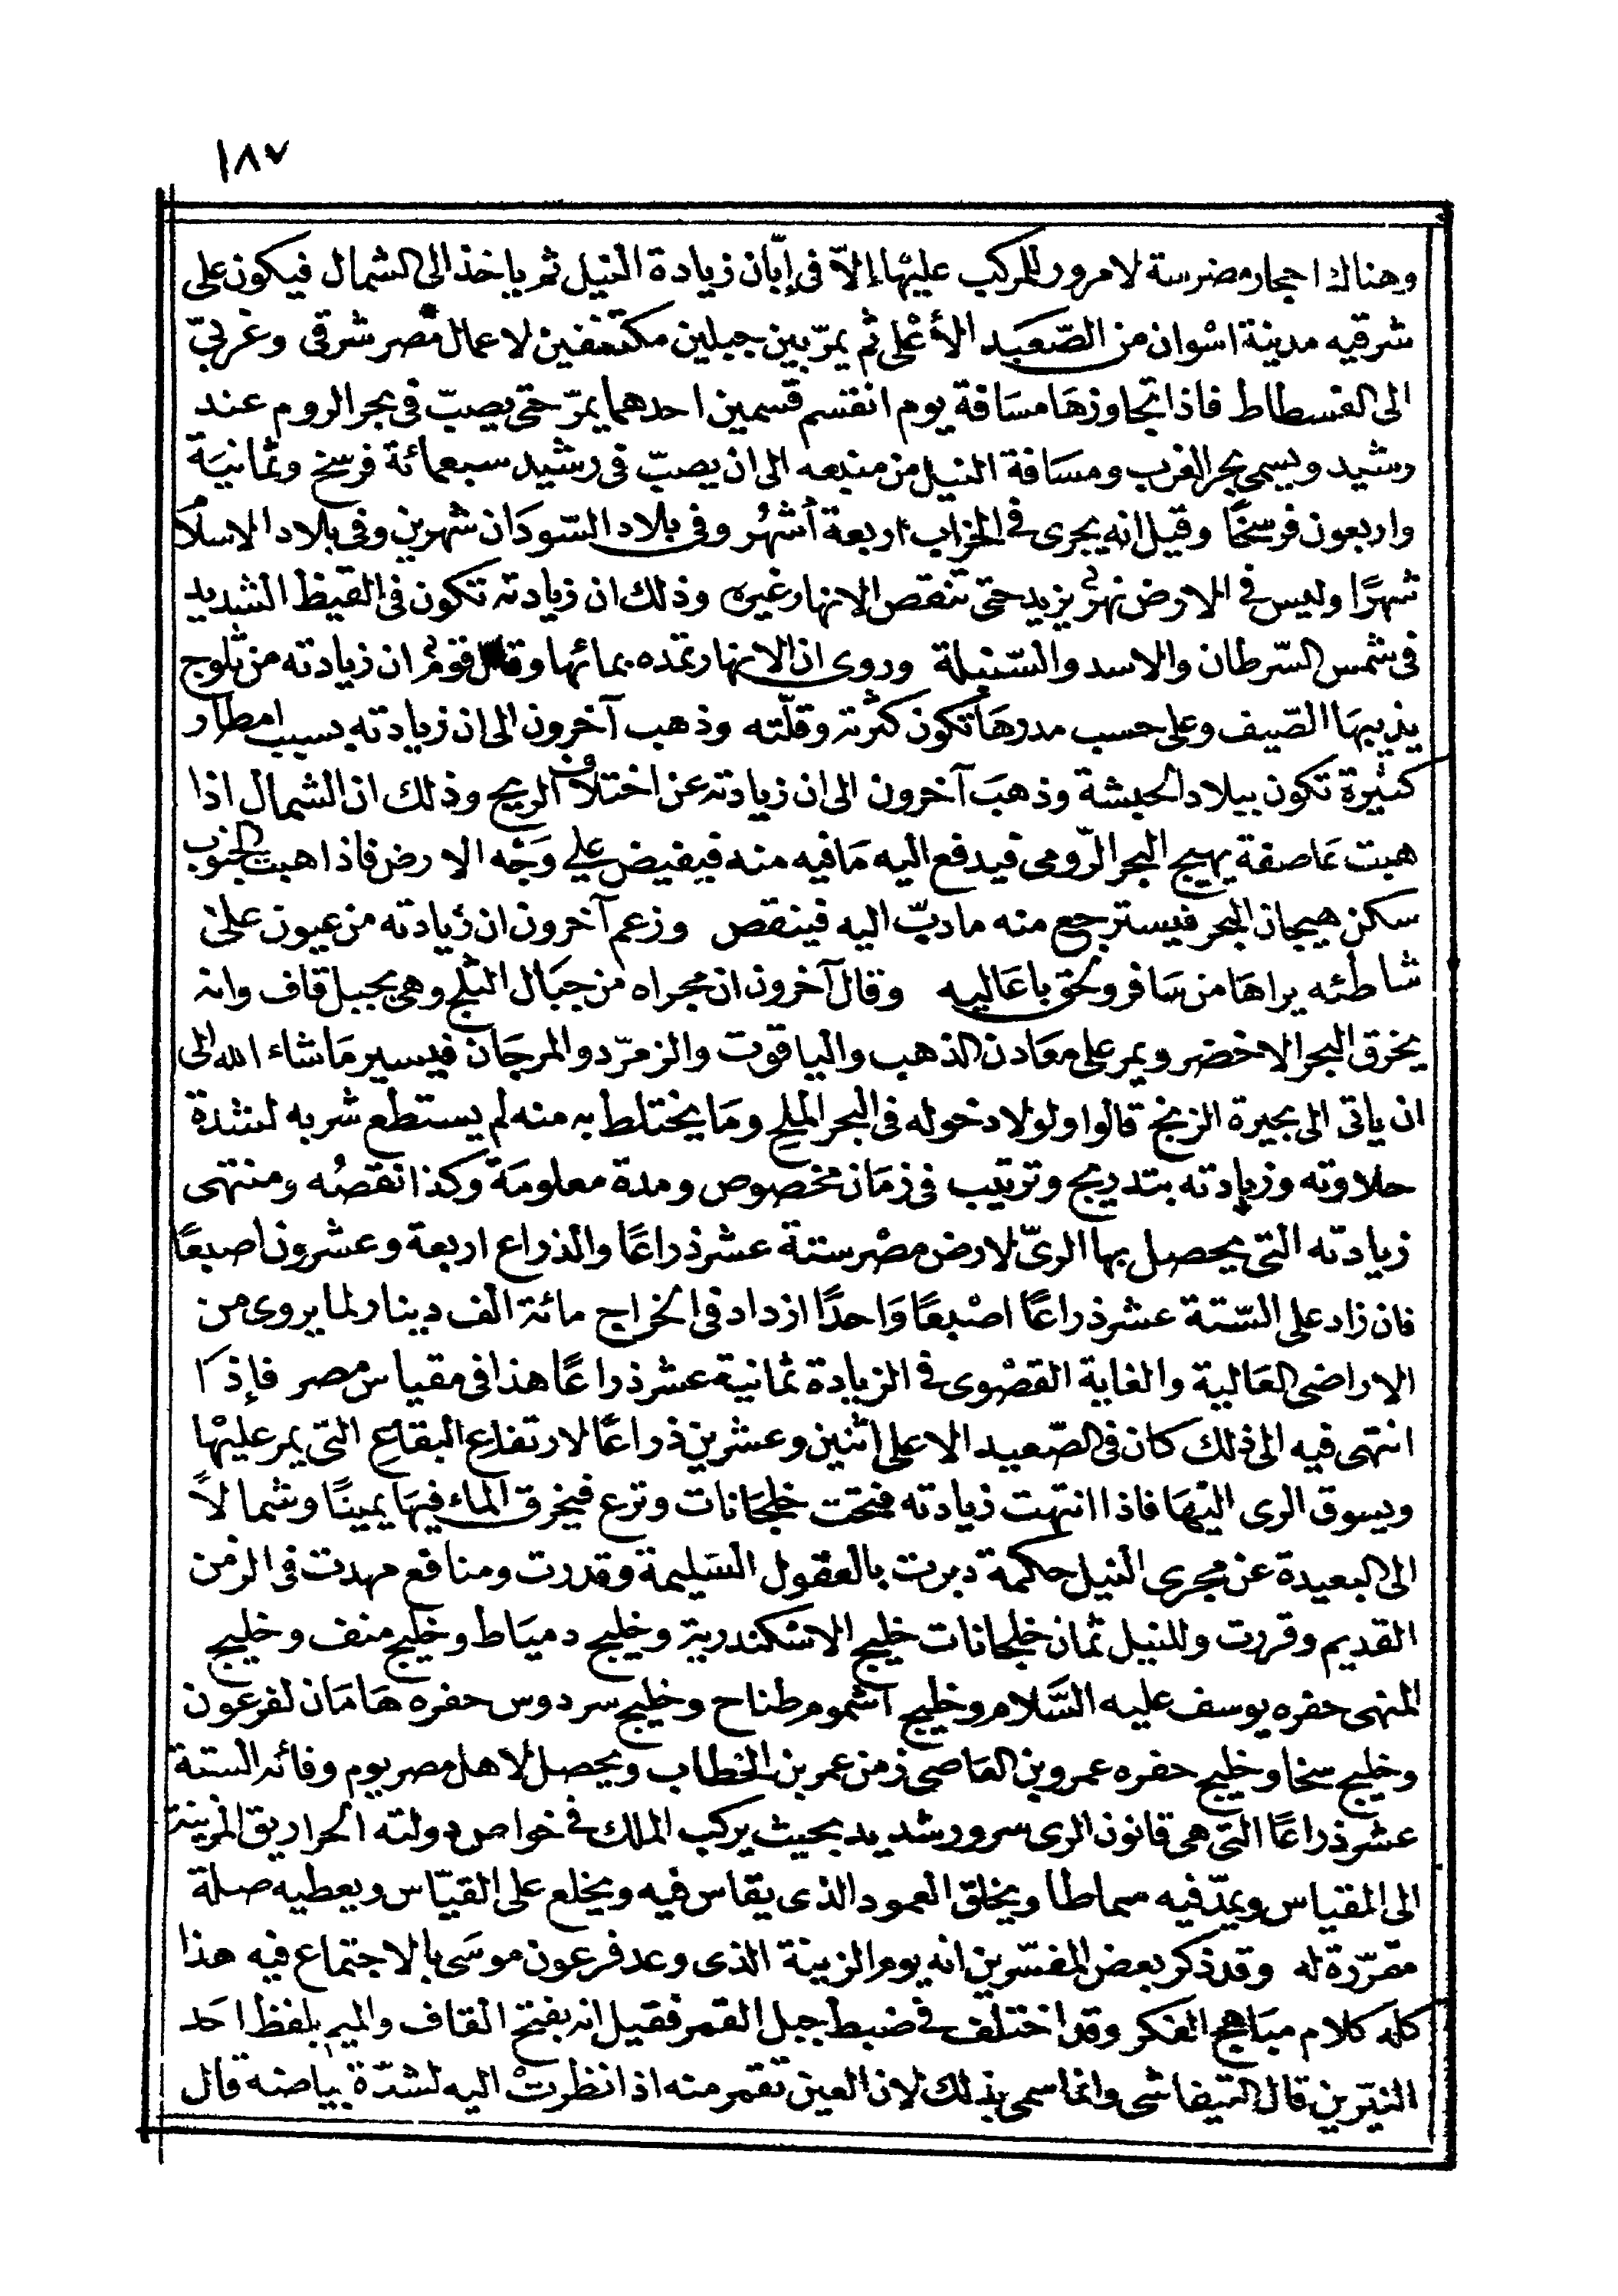 ١٨٧
وهناك احجار مضرسة لا مرور للمركب عليها إلاّ في إبّان زيادة النيل ثم ياخذ الى الشمال فيكون على
شرقيه مدينة اسْوان من الصّعَيد الأعْلى ثم يمرّ بين جبلين مكتنفين لاعمال مصر شرقى وغربيّ
الى الفسطاط فاذا تجاوزهَا مسَافة يوم انقسم قسمين احدهما يمرّ حتى يصبّ فى بحر الروم عند
رشيد ويسمى بحر الغرب ومسَافة النيل من منبعه الى ان يصبّ فى رشيد سبعمائة فرسخ وثمانيَة
واربعون فرسخًا وقيل انه يجرى فى الخراب اربعة أشهُر وفى بلاد السّودَان شهرين وفى بلاد الاسلام
شهرًا وليس فى الارض نهرٌ يزيد حتى تنقص الانهار غيره وذلك ان زيادته تكون فى القيظ الشديد
فى شمس السّرطان والاسد والسّنبلة وروى ان الانهار تمده بمائها وقال قومٌ ان زيادته من ثلوج
يذيبهَا الصّيف وعلى حسب مددهَا تكون كثرته وقلّته وذهب آخرون الى ان زيادته بسبب امطار
كثيرة تكون ببلاد الحبشة وذهبَ آخرون الى ان زيادته عن اختلاف الريح وذلك ان الشمال اذا
هبت عَاصفة يهيج البحر الرّومى فيدفع اليه مَا فيه منه فيفيض على وَجْه الارض فاذا هبت الجنوب
سكن هيجان البحر فيسترجع منه ما دبّ اليه فينقص وزعم آخرون ان زيادته من عيون على
شاطئه يراهَا من سَافر ولحق باعَاليه وقال آخرون ان مجراه من جبَال الثلج وهى بجبل قاف وانه
يخرق البحر الاخضر ويمر على معَادن الذهب والياقوت والزمرّد والمرجَان فيسير مَا شاء الله الى
ان ياتى الى بحيرة الزنج قالوا ولولا دخوله فى البحر الملح ومَا يختلط به منه لم يستطع شربه لشدة
حلاوته وزيادته بتدريج وترتيب فى زمَان مخصوص ومدة معلومَة وكذا نقصُه ومنتهى
زيادته التى يحصل بها الرىّ لارض مصْر ستة عشر ذراعًا والذراع اربعة وعشرون اصبعًا
فان زاد على السّتة عشر ذراعًا اصْبعًا وَاحدًا ازداد فى الخراج مائة الف دينار لما يروى من
الاراضى العَالية والغاية القصْوى فى الزيادة ثمانية عشر ذراعًا هذا فى مقياس مصر فإذَا
انتهى فيه الى ذلك كان فى الصّعيد الاعلى اثنين وعشرين ذراعًا لارتفاع البقاع التى يمر عليْها
ويسوق الرى اليْهَا فاذا انتهت زيادته فتحت خلجَانات وترع فيخرق الماء فيهَا يمينًا وشمالاً
الى البعيدة عن مجرى النيل حكمة دبرت بالعقول السَليمة وقدرت ومنافع مهدت فى الزمن
القديم وقررت وللنيل ثمان خلجانات خليج الاسْكندرية وخليج دميَاط وخليج منف وخليج
المنهى حفره يوسف عليه السَّلام وخليج اشموم طناح وخليج سردوس حفره هَامَان لفرعون
وخليج سخا وخليج حفره عمرو بن العَاصى زمن عمر بن الخطاب ويحصل لاهل مصر يوم وفائه الستة
عشر ذراعًا التى هى قانون الرى سرور شديد بحيث يركب الملك فى خواص دولته الحراريق المزينة
الى المقياس ويمدّ فيه سماطا ويخلق العمود الذى يقاس فيه ويخلع على القيّاس ويعطيه صلة
مقرّرة له وقد ذكر بعض المفسّرين انه يوم الزينة الذى وعد فرعون موسَى بالاجتماع فيه هذا
كله كلام مبَاهج الفكر وقد اختلف فى ضبط جبل القمر فقيل انه بفتح القاف والميم بلفظ احَد
النيّرين قال التيفاشى وانما سمى بذلك لان العين تقمر منه اذا نظرتْ اليه لشدّة بياضه قال